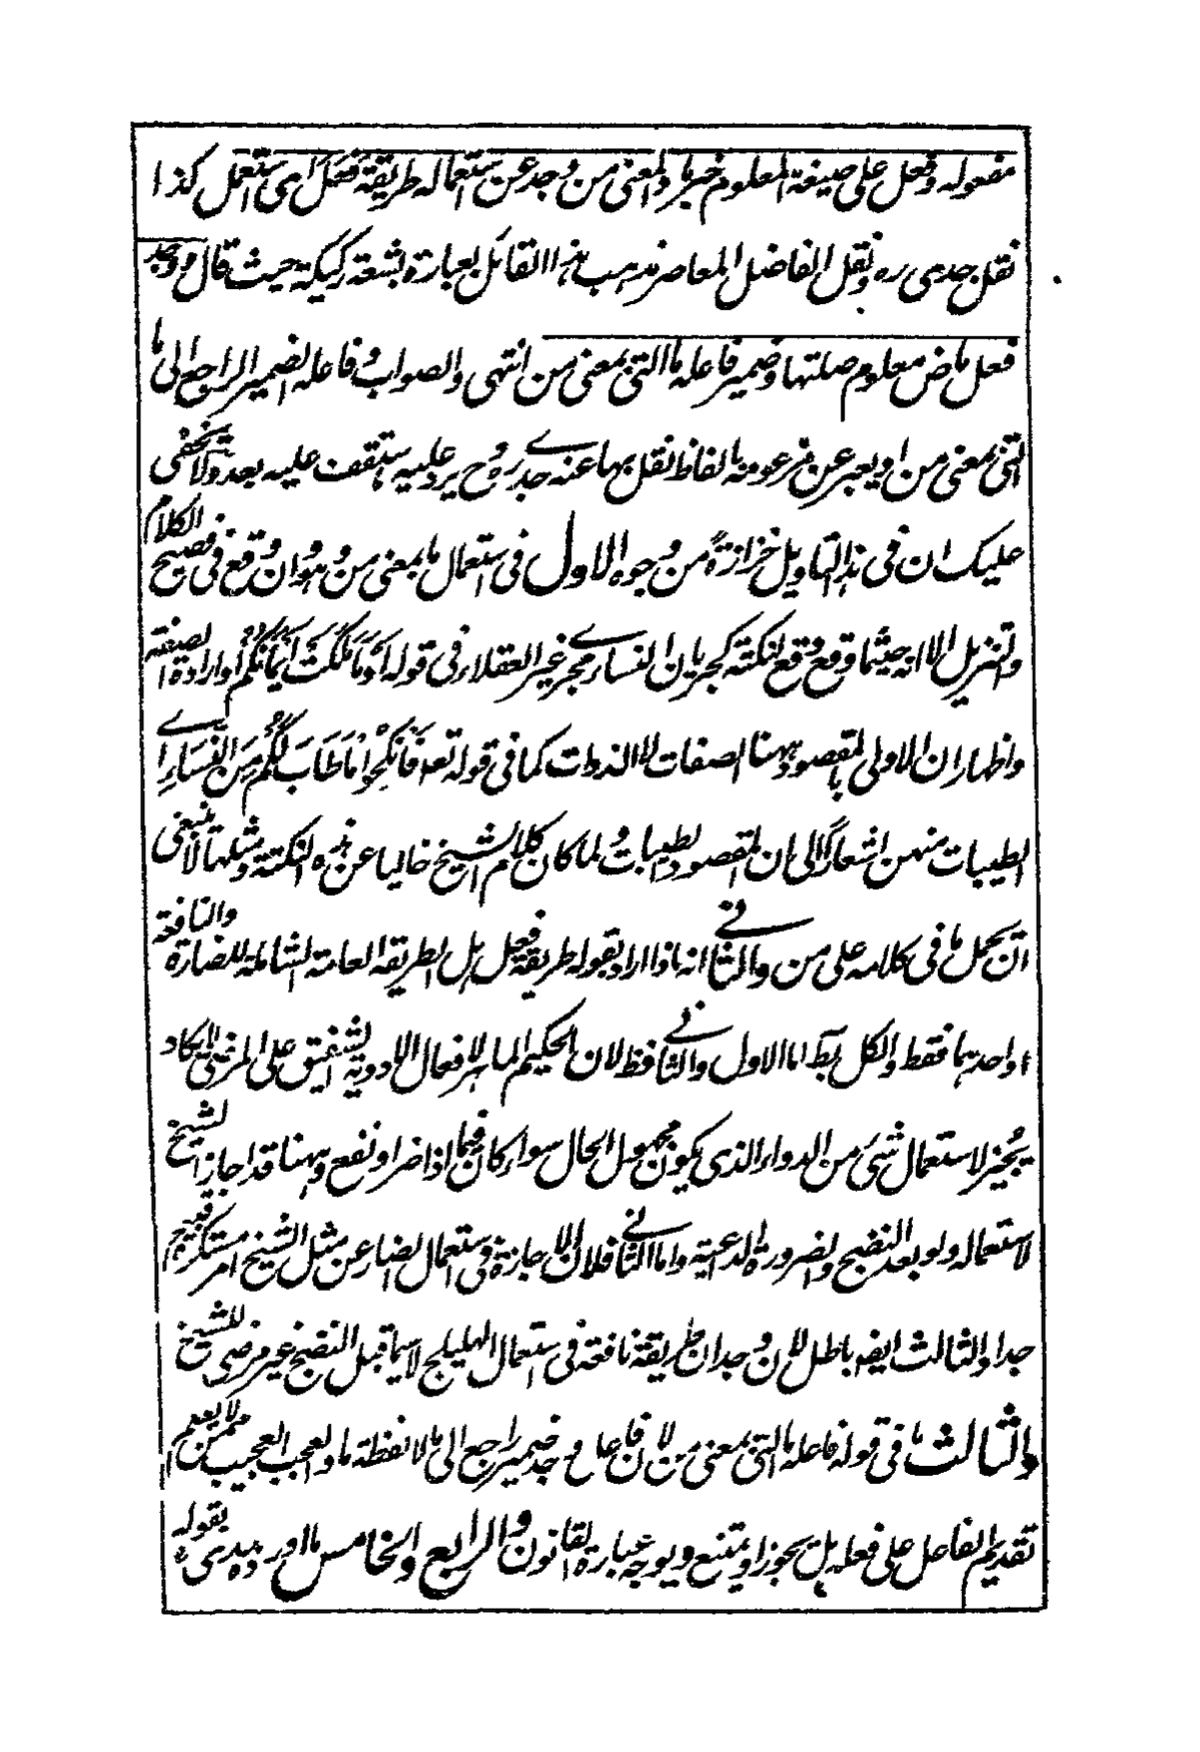 مفعوله وفعل على صيغة المعلوم خبر ما والمعنى من وجد عن استعماله طريقة فعل اى استعمل كذا
نقل جدى ره ونقل الفاضل المعاصر مذهب هذا القائل بعبارة بشعة ركيكة حيث قال ووجد
فعل ماض معلوم صلتها وضمير فاعله ما التى بمعنى من انتهى والصواب وفاعله الضمير الراجع الى ما
التى بمعنى من او يعبر عن مزعومه بالفاظ نقل بها عنه جدى ره وح يرد عليه ما ستقف عليه بعد ولا يخفى
عليك ان فى هذا التاويل حزازة من وجوه الاول فى استعمال ما بمعنى من وهو وان وقع فى فصيح الكلام
والتنزيل الا انه حيثما وقع وقع لنكتة كجريان النساء مجرى غير العقلاء فى قوله او ما ملكت ايمانكم او ارادة الصفة
واظهار ان الاولى بالمقصود ههنا الصفات لا الذوات كما فى قوله تعه فانكحوا ما طاب لكم من النساء اى
الطيبات منهن اشعارا الى ان المقصود الطيبات ولما كان كلام الشيخ خاليا عن هذه النكتة ومثلها لا ينبغى
ان يحمل ما فى كلامه على من والثانى انه ماذا اراد بقوله طريقة فعل هل الطريقة العامة الشاملة للضارة والنافعة
او احدهما فقط والكل بط اما الاول والثانى فظ لان الحكيم الماهر لافعال الادوية الشفيق على المرضى لا يكاد
يجيز لاستعمال شئ من الدواء الذى يكون مجهول الحال سواء كان فيما اذا ضر او نفع وههنا قد اجاز الشيخ
لاستعماله ولو بعد النضج والضرورة الداعية واما الثانى فلان الاجازة فى استعمال الضار عن مثل الشيخ امر مستكره قبيح
جدا والثالث ايضه باطل لان وجدان طريقة نافعة فى استعمال الهليلج لاسيما قبل النضج غير مرضى للشيخ
والثالث ما فى قوله فاعله ما التى بمعنى من لان فاعل وجد ضمير راجع الى ما لا لفظة ما والعجب العجيب ممن لا يعلم ان
تقديم الفاعل على فعله هل يجوز او يمتنع ويوجه عبارة القانون والرابع والخامس ما اورده جدى ره بقوله